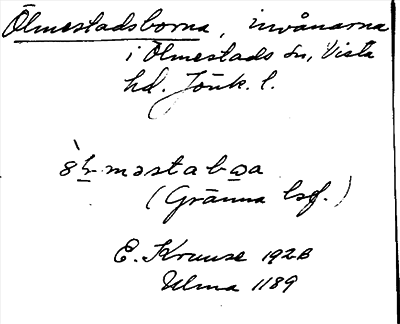 Ölmestadsborna, invånarna
i Ölmestads sn, Vista
hd. Jönk. l.
məstabɷa
(Gränna lsf.)
E. Krause 1928
Ulma 1189